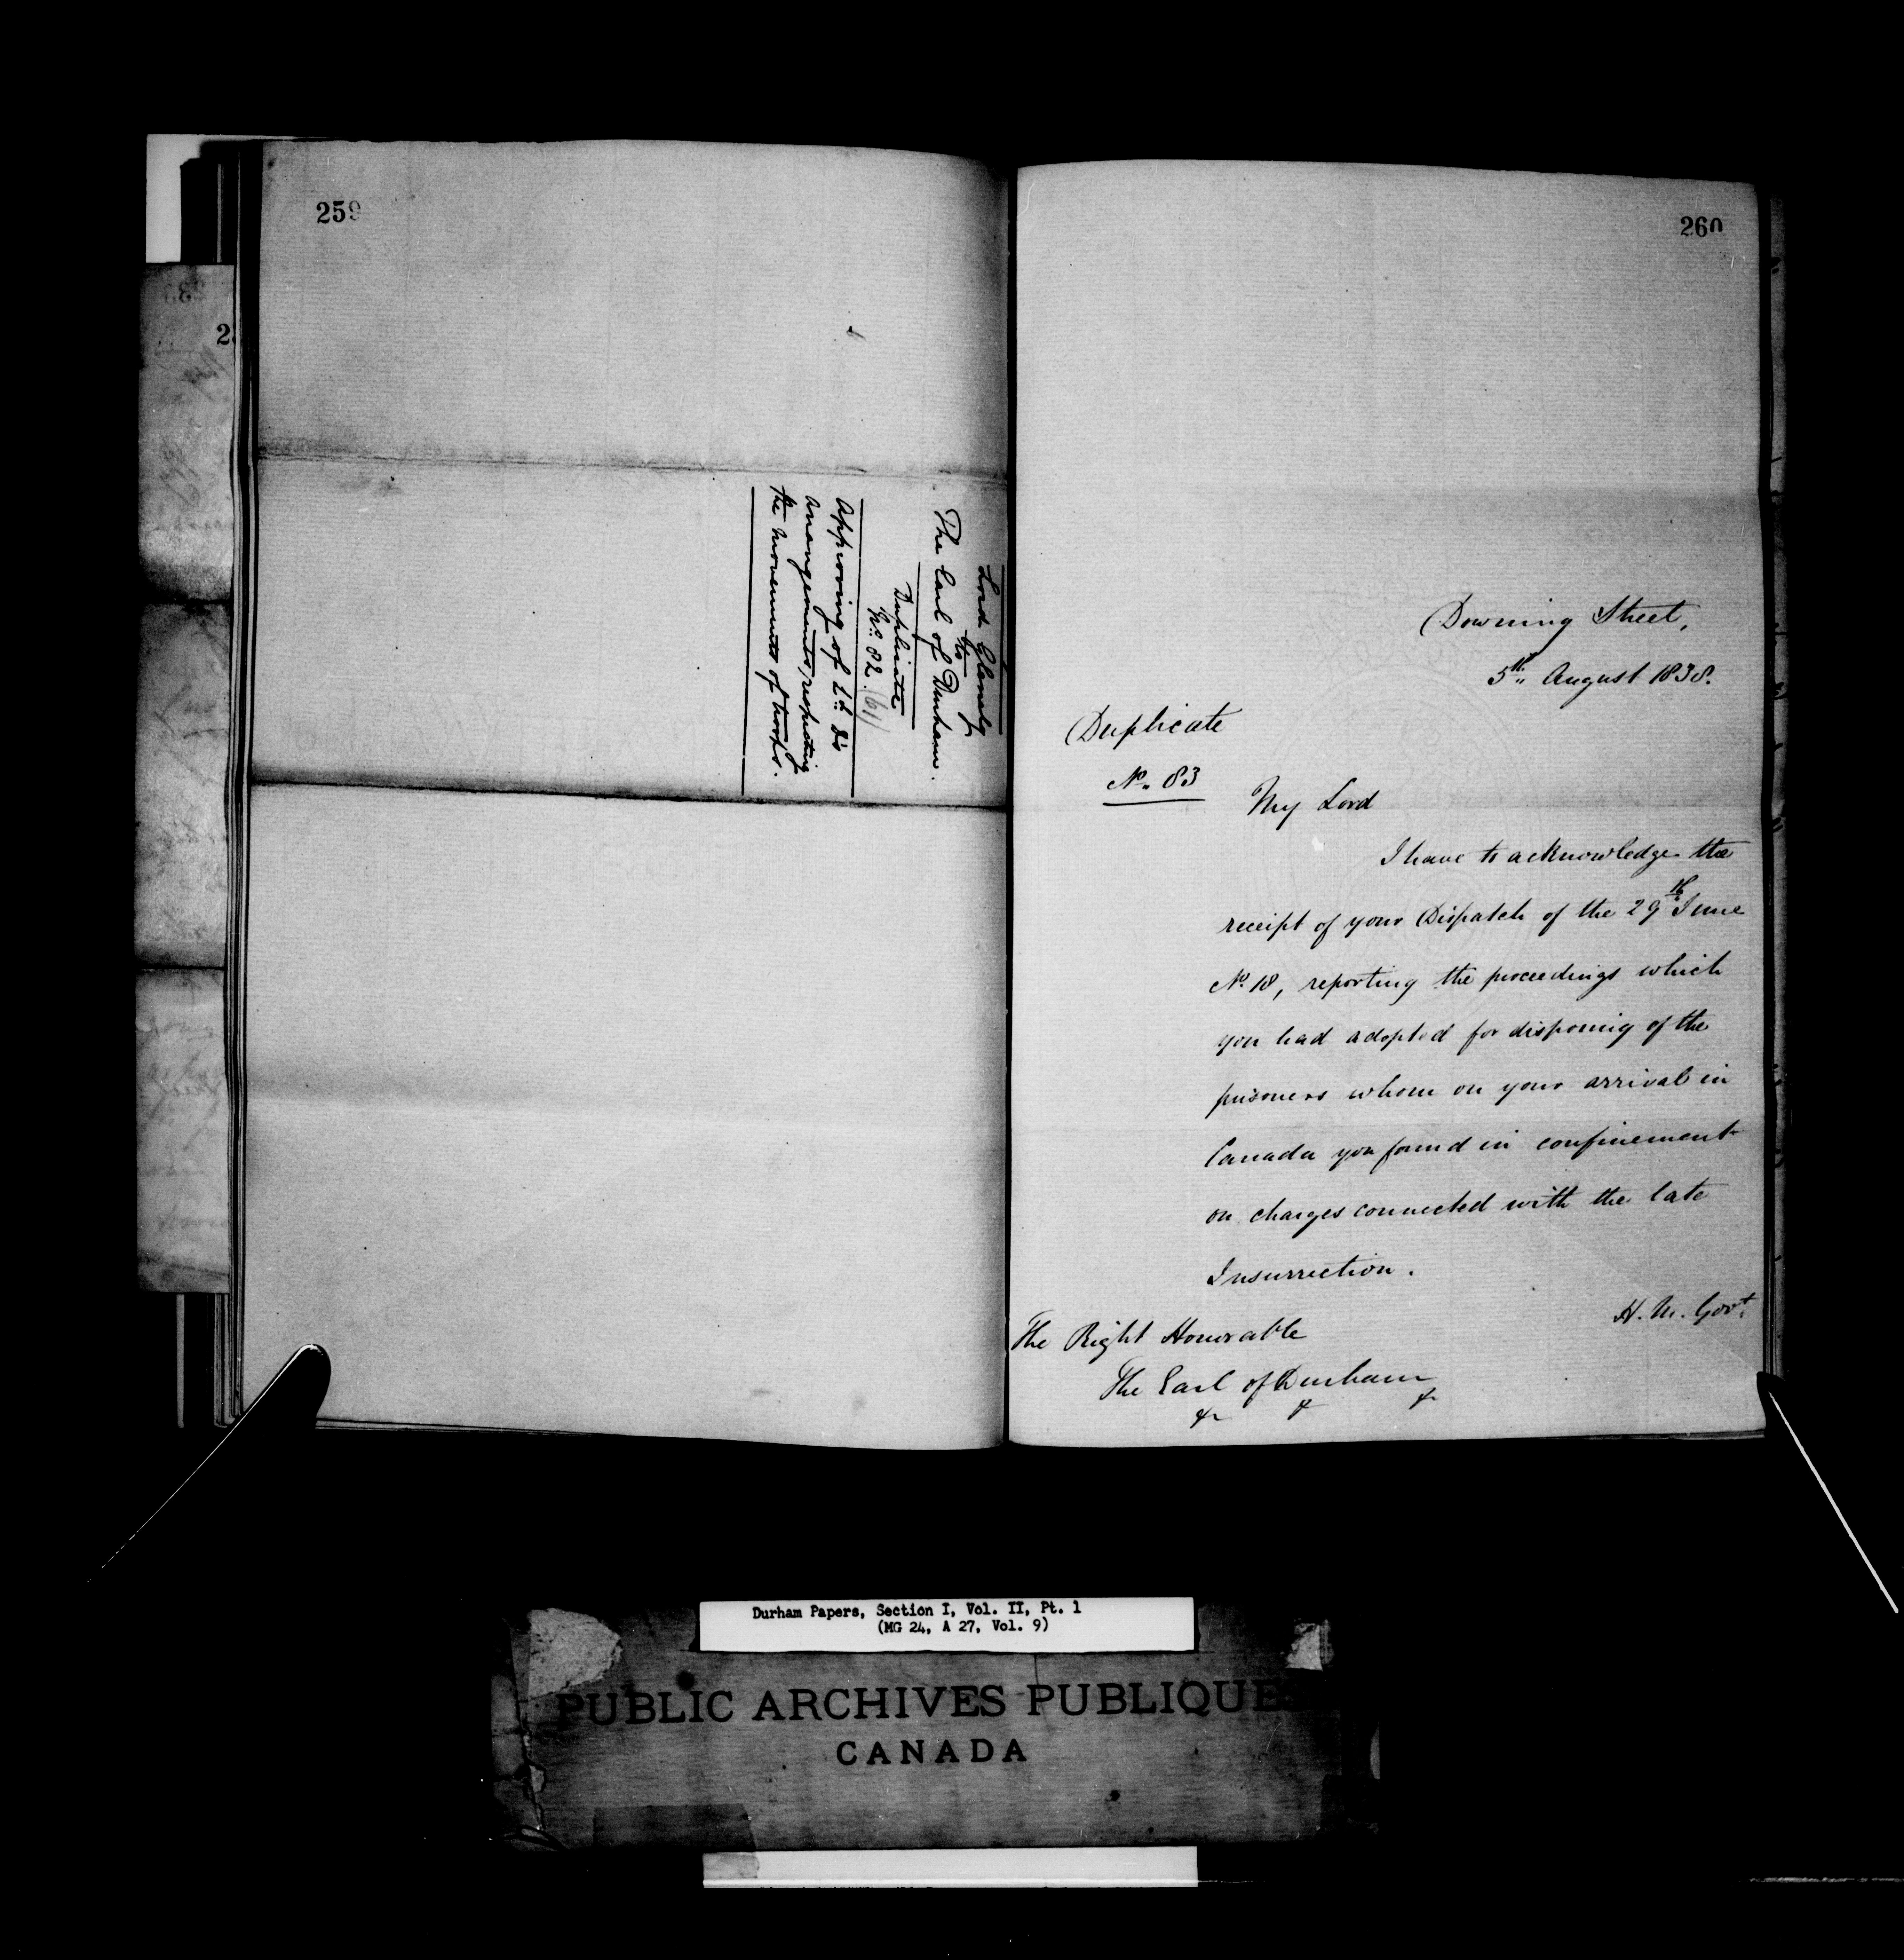 259
Lord Glenelg
to
The Earl of Durham.
Duplicate
No. 82. (61)
Approving of Ld. D's
arrangements respecting
the movements of troops.
260
Downing Street,
5th August 1838.
Duplicate
No. 83
My Lord
I have to acknowledge the
receipt of your Dispatch of the 29th June
No. 18, reporting the proceedings which
you had adopted for disposing of the
prisoners whom on your arrival in
Canada you found in confinement
on charges connected with the late
Insurrection.
H. M. Govt.
The Right Honorable
The Earl of Durham
&c &c &c
Durham Papers, Section I, Vol. II, Pt. 1
(MG 24, A 27, Vol. 9)
PUBLIC ARCHIVES PUBLIQUE
CANADA